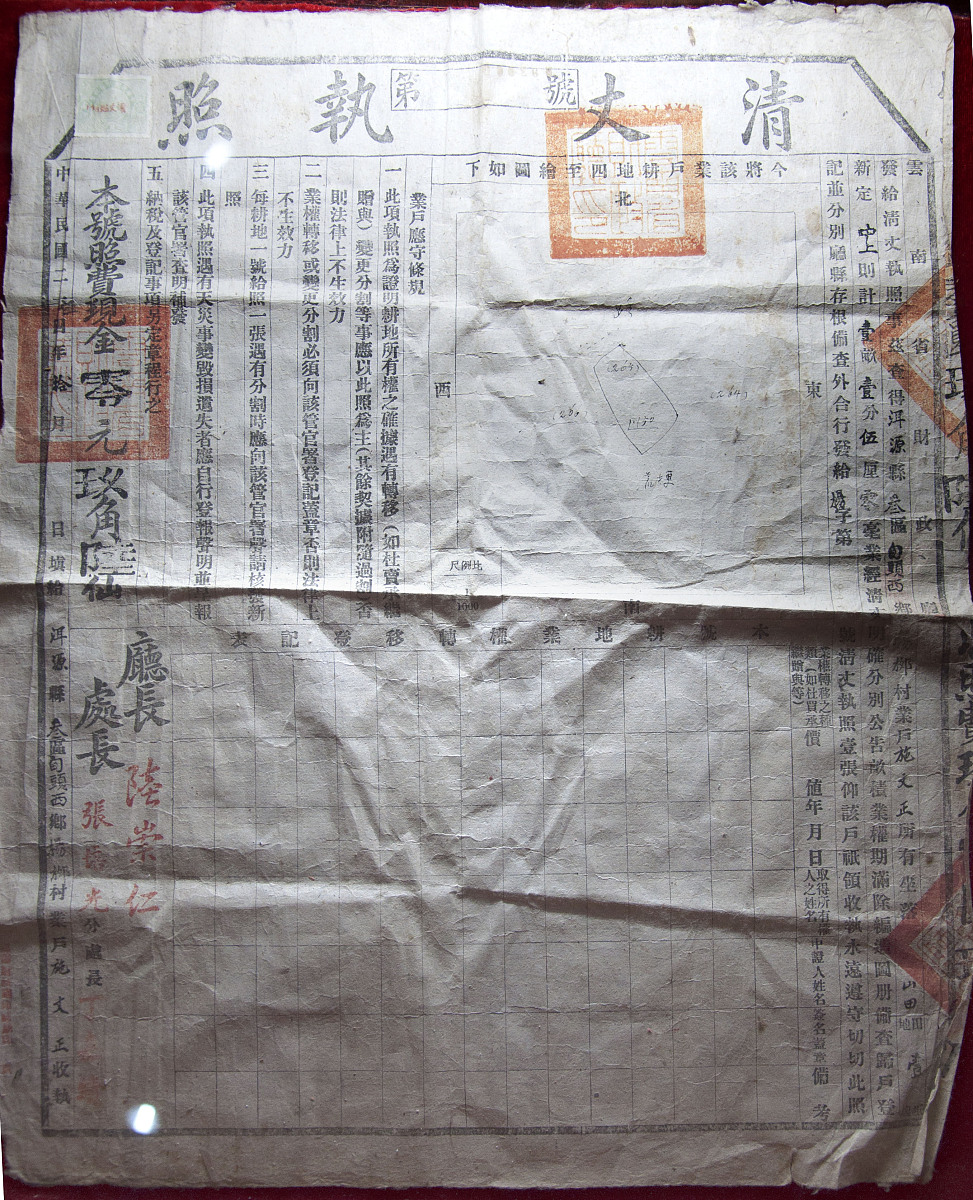 清丈執照
第 號
雲南省財政廳
發給清丈執照事茲查得洱源縣叁區旬頭西鄉 鄉村業戶施文正所有坐落 山田 壹
新定中上則計壹畝壹分伍厘零毫業經清丈明確分別公告畝積業權期滿除編造圖册備查歸戶登
記並分別廳縣存根備查外合行發給 字第 號清丈執照壹張仰該戶祇領收執永遠遵守切切此照
今將該業戶耕地四至繪圖如下
北
東
西
南
比例尺
1
1000
業戶應守條規
一 此項執照爲證明耕地所有權之確據遇有轉移(如杜賣承繼
贈與)變更分割等事應以此照爲主(其餘契據附隨過割)否
則法律上不生效力
二 業權轉移或變更分割必須向該管官署登記蓋章否則法律上
不生效力
三 每耕地一號給照一張遇有分割時應向該管官署聲請核發新
照
四 此項執照遇有天災事變毀損遺失者應自行登報聲明並呈報
該管官署查明補發
五 納稅及登記事項另定章程行之
本號耕地業權轉移登記表
業權轉移之種類(如杜買承繼贈與等)
價值
年月日
取得所有權人之姓名
中證人姓名
簽名蓋章
備考
本號照費現金零元玖角陸仙
廳長 陸崇仁
處長 張 光
分處長
中華民國二十 年拾月 日填給 洱源縣叁區旬頭西鄉 村業戶施文正收執